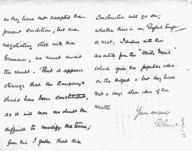 as they have not accepted these
present conditions, but are
negotiating still with the
Germans, we must await
the result. But it appears
strange that the Company
should have been constituted,
as it will now no doubt be
difficult to modify the terms;
from this I gather that the
Construction will go on;
whether there is an English
or not. I enclose with this
an article from the "Daily Mail"
which gives the popular idea
on the subject & but they have
not a very clear idea of the
matter
Yours sincerely